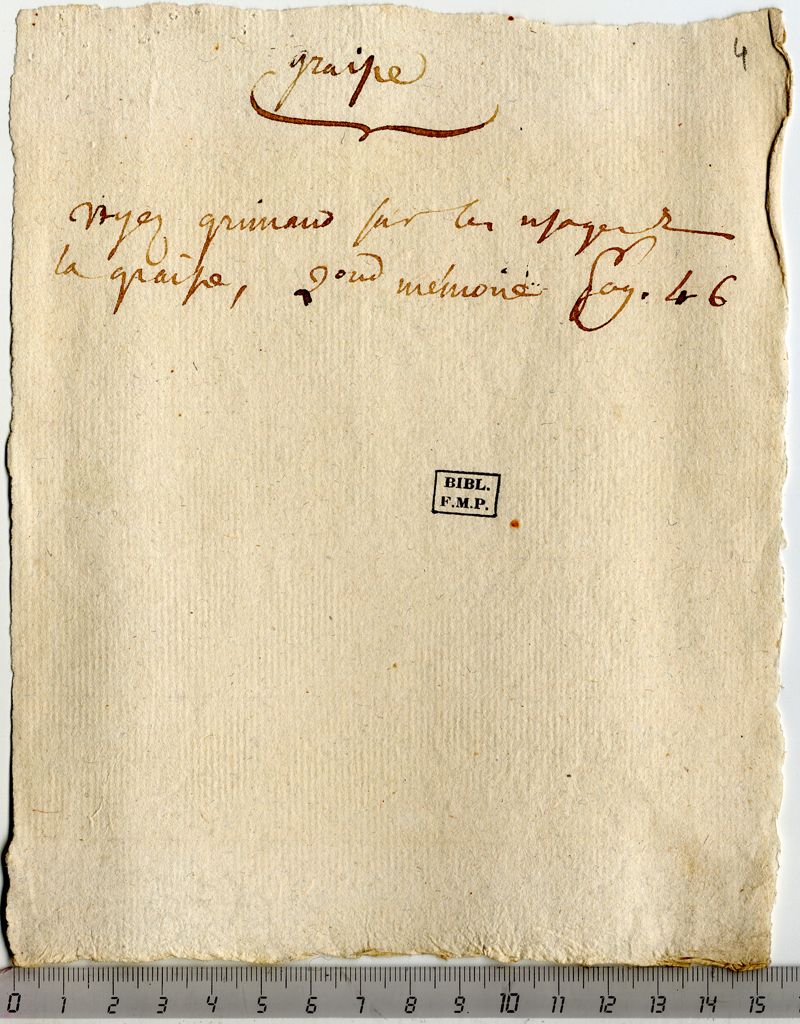 4
graisse
voyez grimaud sur les usages de
la graisse, 2ond mémoire pag. 46
BIBL.
F.M.P.
0 1 2 3 4 5 6 7 8 9 10 11 12 13 14 15